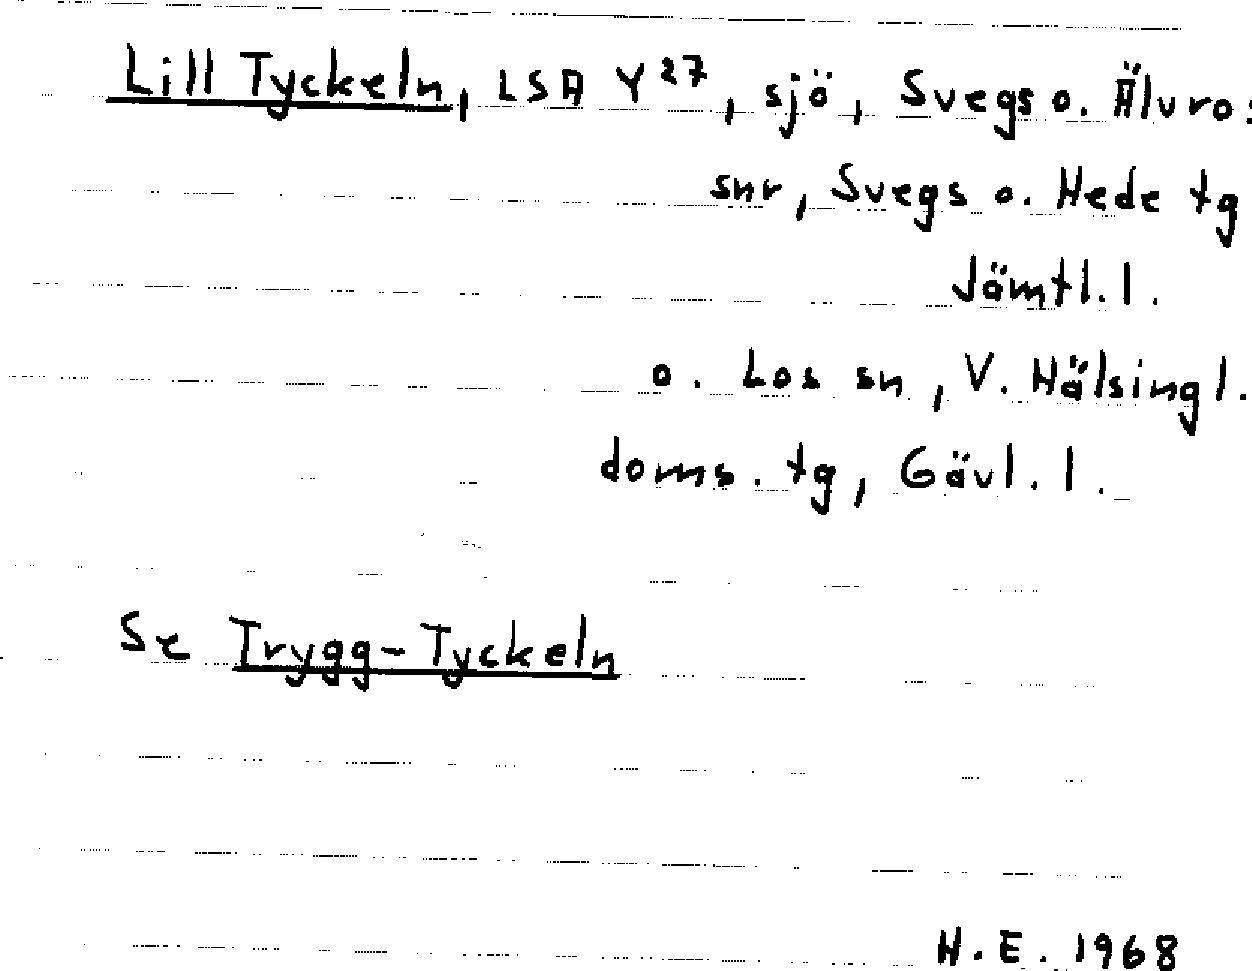 Lill Tyckeln, LSA Y27, sjö, Svegs o. Älvros
snr, Svegs o. Hede tg
Jämtl. l.
o. Los sn, V. Hälsingl.
doms. tg, Gävl. l.
Se Trygg-Tyckeln
H.E. 1968